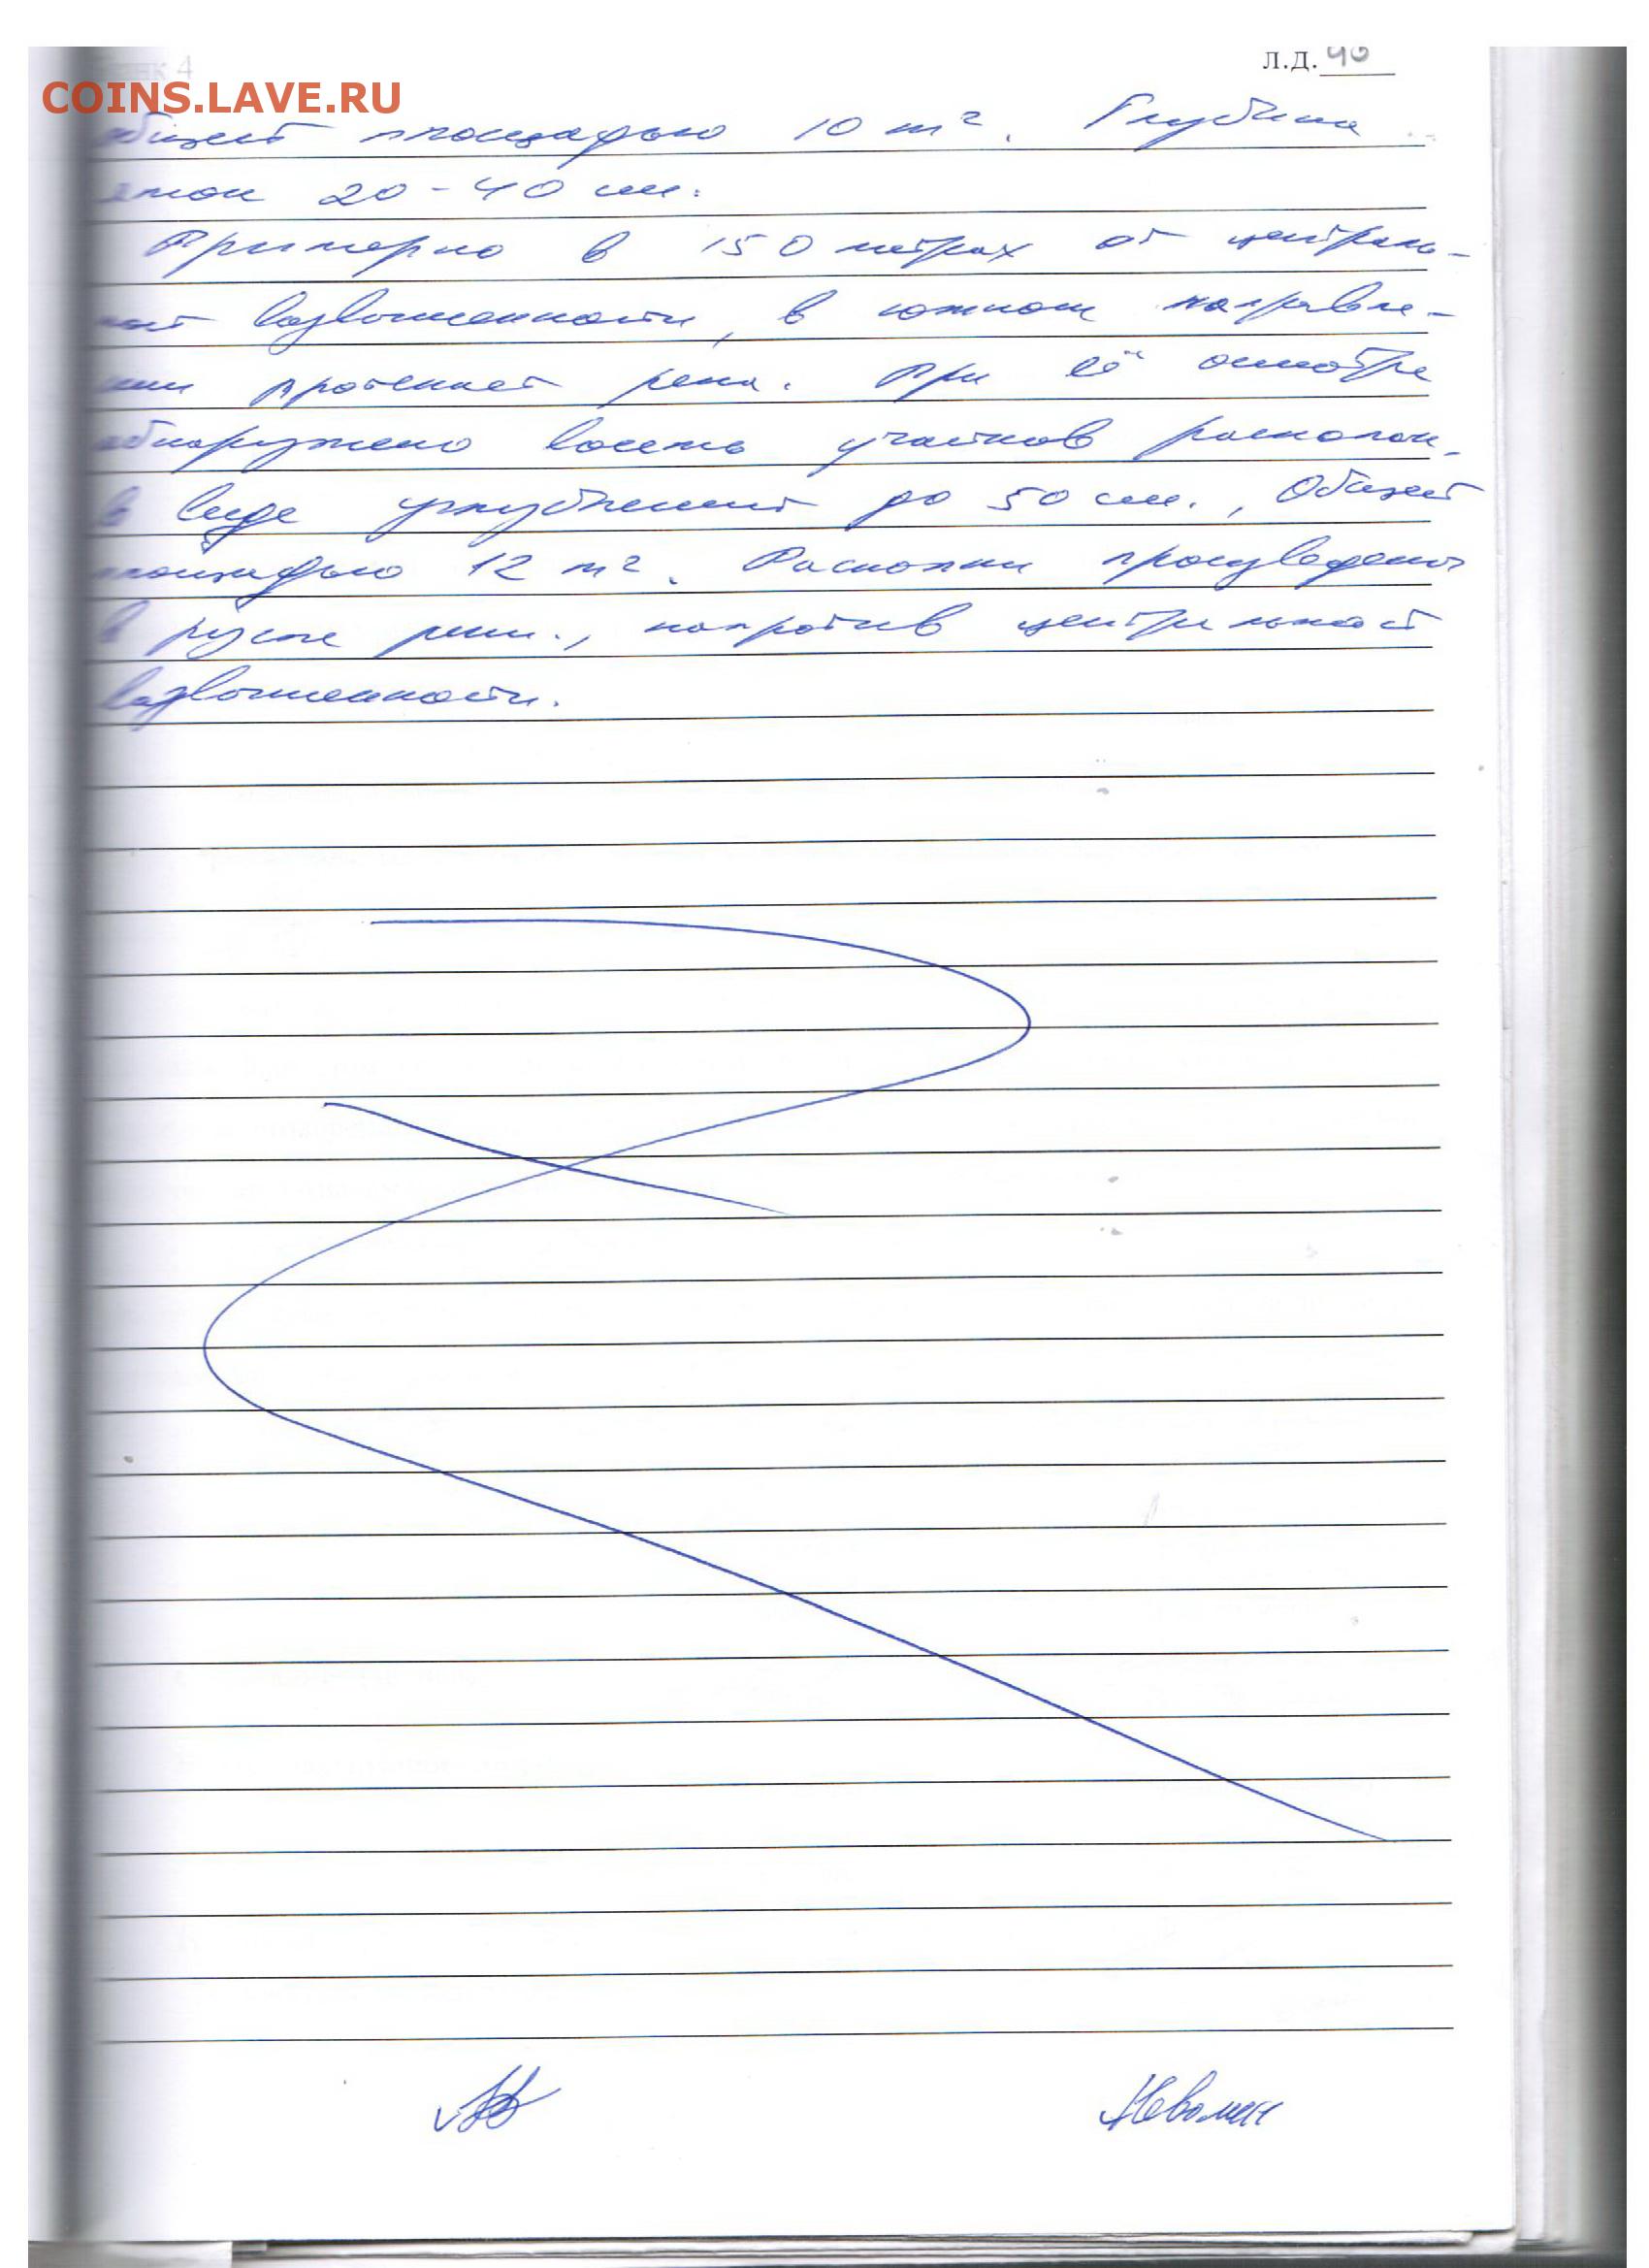 л.д. 40
COINS.LAVE.RU
общей площадью 10 м². Глубина
ямок 20-40 см.
Примерно в 150 метрах от централь-
ной возвышенности, в южном направле-
нии протекает река. При её осмотре
обнаружено восемь участков раскопок
в виде углублений до 50 см., Общей
площадью 12 м². Раскопки произведены
в русле реки., напротив центральной
возвышенности.
Неволин